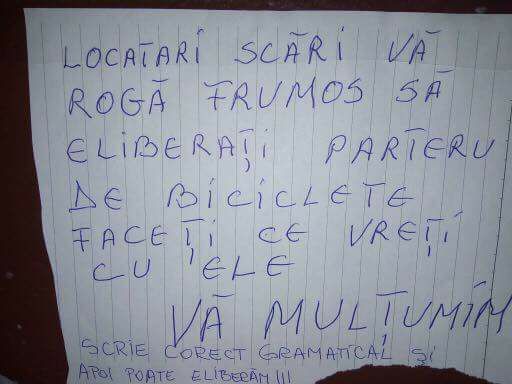 LOCATARI SCĂRI VĂ
ROGĂ FRUMOS SĂ
ELIBERAȚI PARTERU
DE BICICLETE
FACEȚI CE VREȚI
CU ELE
VĂ MULȚUMIM
SCRIE CORECT GRAMATICAL ȘI
APOI POATE ELIBERĂM!!!